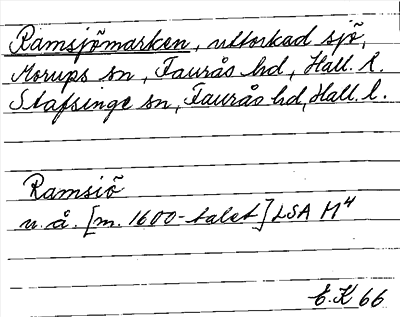 Ramsjömarken, uttorkad sjö,
Morups sn, Faurås hd, Hall. l.
Stafsinge sn, Faurås hd, Hall. l.
Ramsiö
u. å. [m. 1600-talet] LSA M4
E.K 66